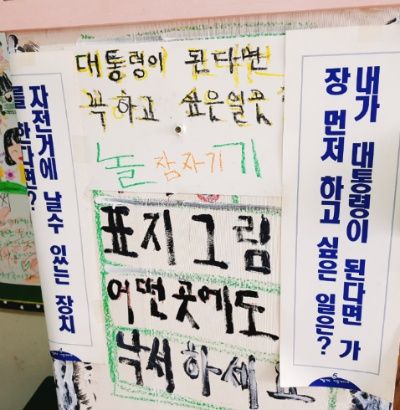 대통령이 된다면
꼭 하고 싶은일곳
놀 잠자기 기
표지그림
어떤곳에도
낙서하세요
자전거에 날수 있는 장치
를 한다면?
내가 대통령이 된다면 가
장 먼저 하고 싶은 일은?